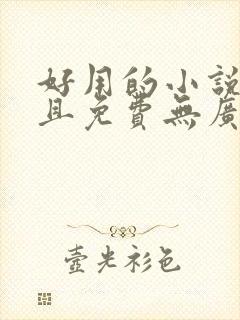 好用的小說
且免費無廣
壺光衫色